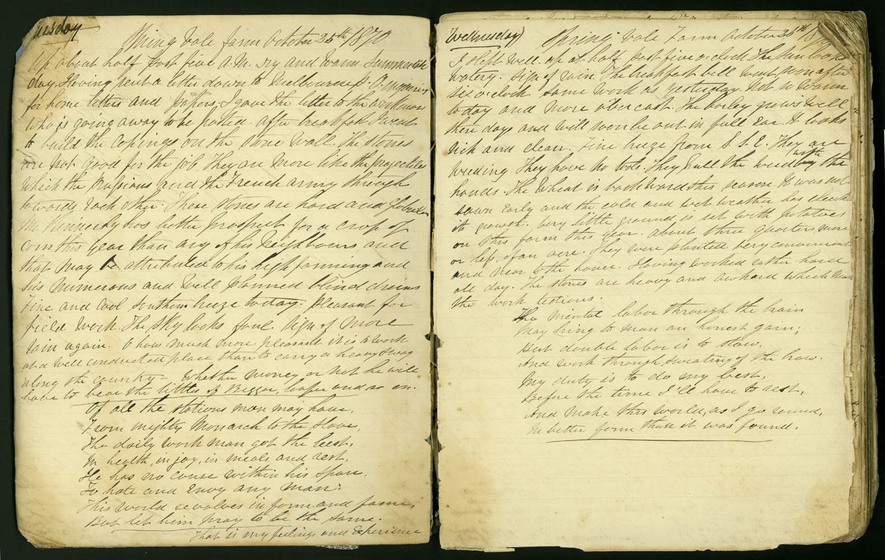 Tuesday
Spring Vale farm October 25th 1870
Up about half past five A.M. Dry and warm summerlike
day. Having sent a letter down to Melbourne P.O. enquiring
for home letters and papers, I gave the letter to the
who is going away to be posted. After breakfast I went
to build the copings on the stone wall. The stones
are not good for the job. They are more like the projectiles
which the Prussians and the French army through
towards each other. These stones are hard and
Mr Kinnersly has better prospect for a crop of
corn this year than any of his neighbours and
that may be attributed to his high farming and
his numerous and well planned blind drains
Fine and cool southern breeze today. Pleasant for
field work. The sky looks foul sign of more
rain again. O how much more pleasure it is to work
at a well conducted place than to carry a heavy swag
along the country. Whether money or not he will
have to bear the titles of Beggar, loafer and so on.
Of all the stations man may have,
From mighty Monarch to the slave,
The daily work man got the best,
In health, in joy, in meals and rest.
He has no cause within his span,
To hate and envy any man:
This world revolves in form and fame;
But let him pray to be the same.
That is my feelings and Experience
Wednesday
Spring Vale Farm October 26th
I slept well. up at half past five o'clock. The sun looks
watery. Sign of rain. The breakfast bell went soon after
six o'clock same work as yesterday. Not so warm
today and more overcast. The barley grows well
these days and will soon be out in full ear. It looks
rich and clean. Fine breeze from S.S.E. They are
weeding. They have no tools. They pull the weed with the
hands. The wheat is backward this season. It was not
sown early and the cold and wet weather has checked
its growth. Very little ground is set with potatoes
on this farm this year. about three quarters more
or less of an acre. They were planted very convenient
and near to the house. Having worked rather hard
all day. The stones are heavy and awkward which makes
the work tedious.
The mental labor through the brain
May bring to man an honest gain;
But double labor is to plow,
And work through sweating of the brow.
My duty is to do my best,
Before the time I'll have to rest,
And make this world, as I go round,
In better form than it was found.